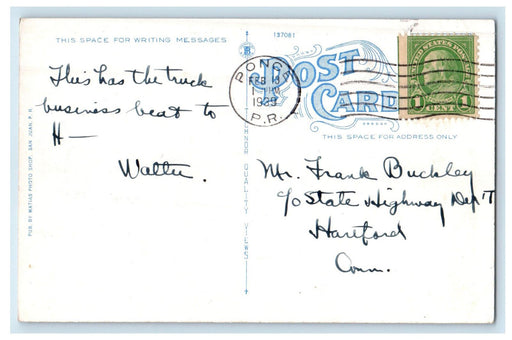 THIS SPACE FOR WRITING MESSAGES
137081
POST CARD
UNITED STATES POSTAGE
1 CENT 1
PONCE
FEB 13
1929
P.R.
THIS SPACE FOR ADDRESS ONLY
This has the truck
business beat to
H—
Walter.
Mr. Frank Buckley
c/o State Highway Dep'T
Hartford
Conn.
PUB. BY MATIAS PHOTO SHOP, SAN JUAN, P. R.
QUALITY VIEWS